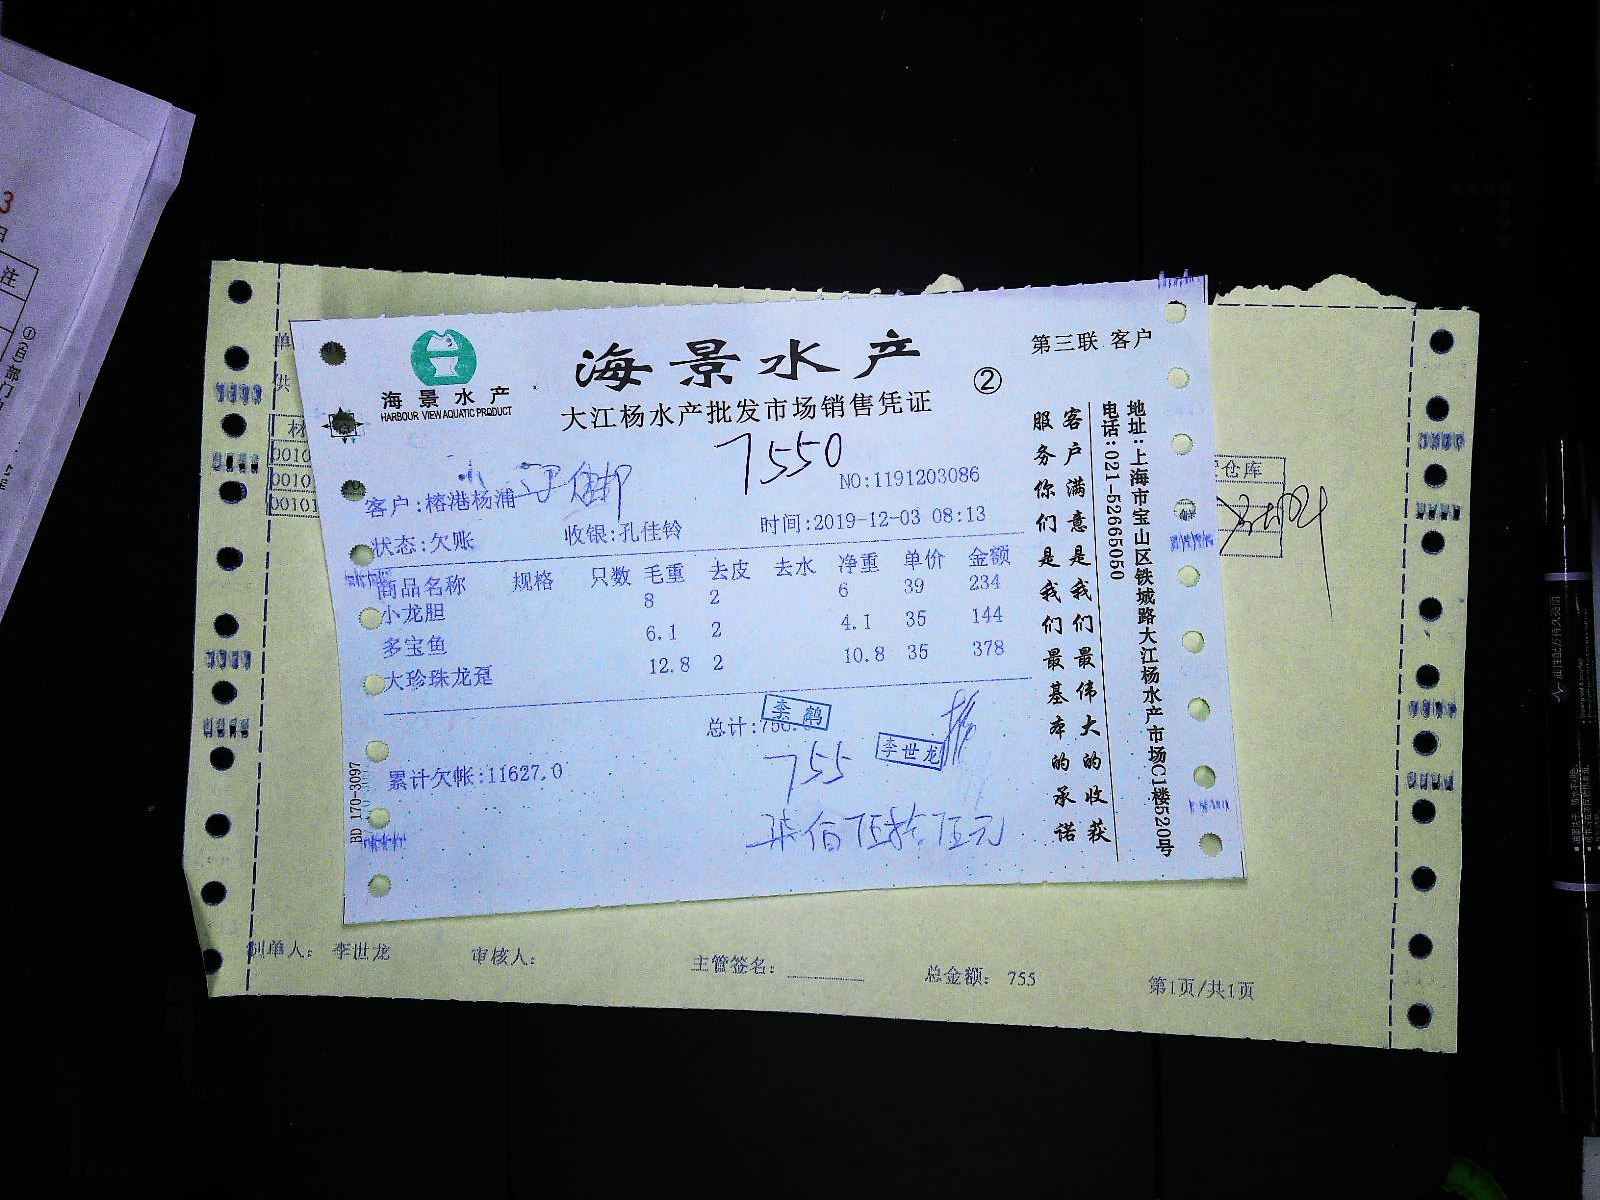 海景水产
HARBOUR VIEW AQUATIC PRODUCT
海景水产
大江杨水产批发市场销售凭证
②
第三联 客户
7550
NO:1191203086
客户:榕港杨浦
状态:欠账
收银:孔佳铃
时间:2019-12-03 08:13
商品名称 规格 只数 毛重 去皮 去水 净重 单价 金额
小龙胆 8 2 6 39 234
多宝鱼 6.1 2 4.1 35 144
大珍珠龙趸 12.8 2 10.8 35 378
总计:756.
李鹤
李世龙
755
累计欠帐:11627.0
柒佰伍拾伍元
BD 170-3097
客户满意是我们最伟大的收获
服务你们是我们最基本的承诺
地址:上海市宝山区铁城路大江杨水产市场C1楼520号
电话:021-52665050
单
供
材
0010
0010
00101
仓库
制单人: 李世龙
审核人:
主管签名:
总金额: 755
第1页/共1页
3
日
注